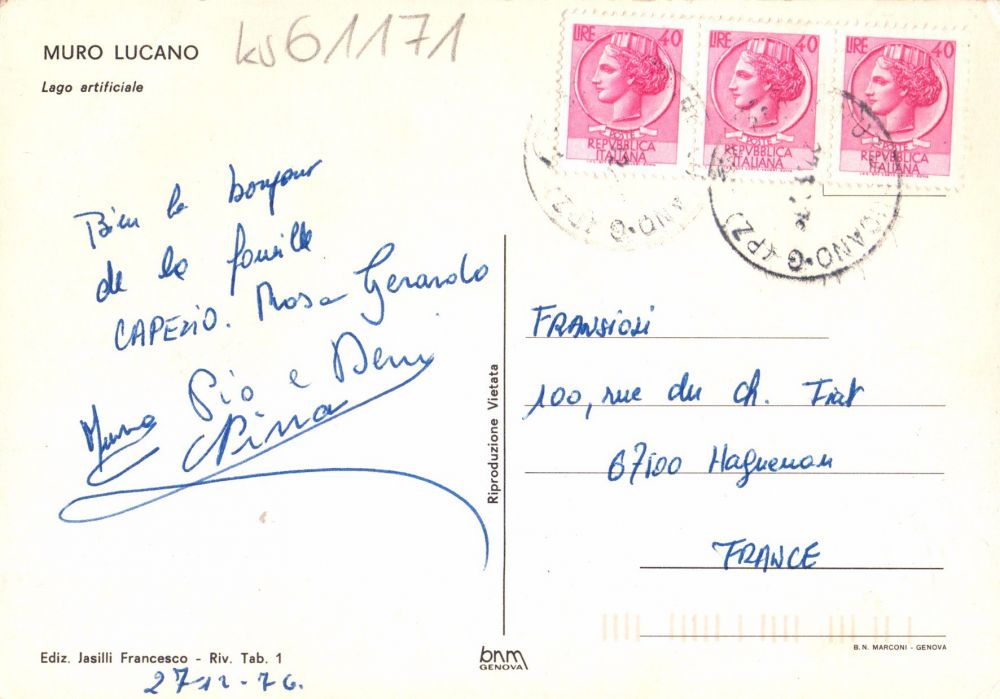 MURO LUCANO
Lago artificiale
ks61171
LIRE 40
POSTE
REPVBBLICA
ITALIANA
LIRE 40
POSTE
REPVBBLICA
ITALIANA
LIRE 40
POSTE
REPVBBLICA
ITALIANA
Bien le bonjour
de la famille
CAPEZIO. Rosa Gerardo
Pio e
Pina
Riproduzione Vietata
FRANSIOLI
100, rue du ch. Fiat
67100 Haguenau
FRANCE
Ediz. Jasilli Francesco - Riv. Tab. 1
27 12-76.
bnm
GENOVA
B. N. MARCONI - GENOVA